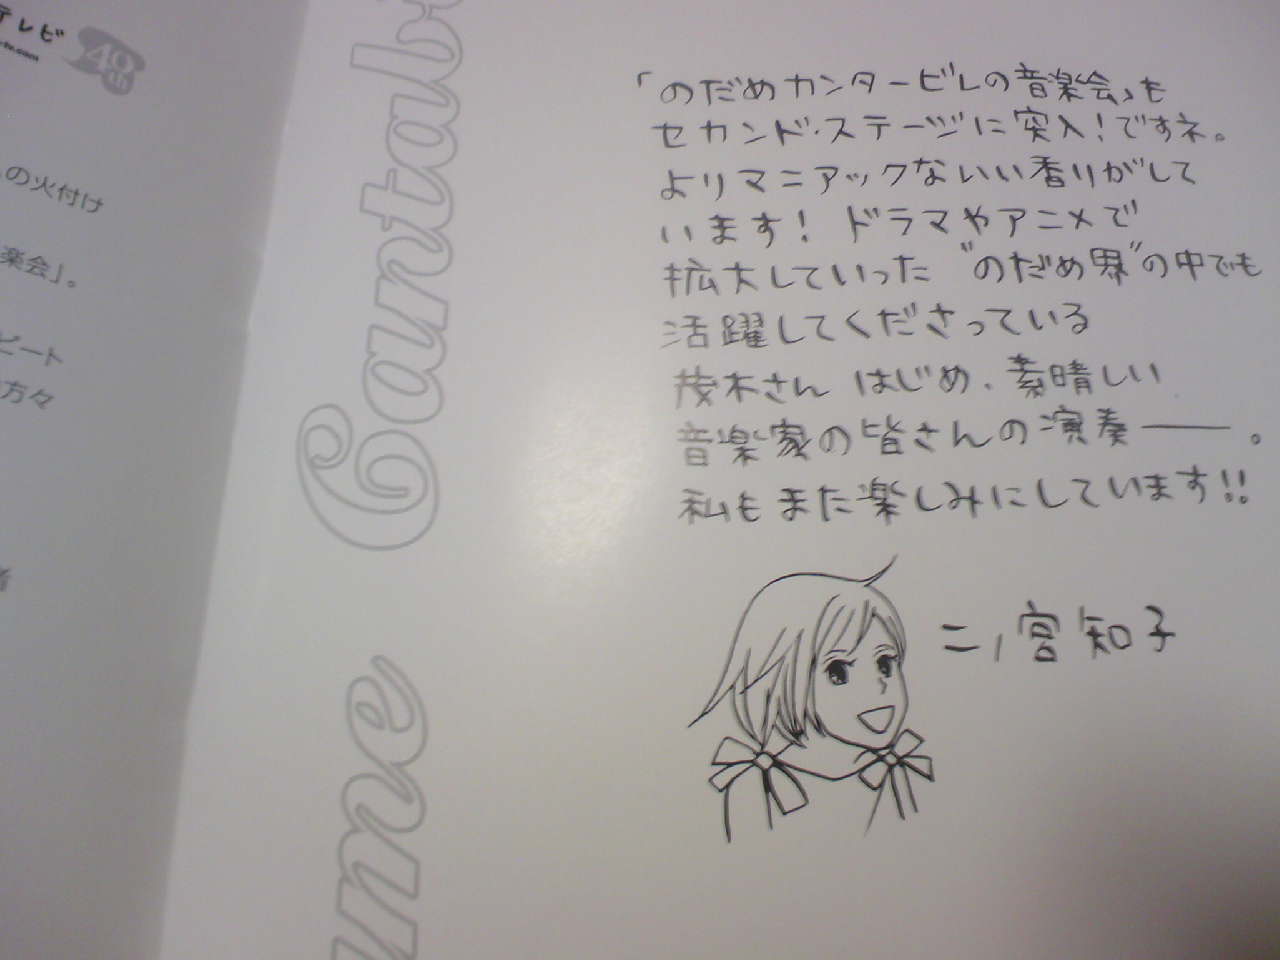 テレビ
40th
の火付け
楽会」。
ビート
方々
Cantab
ume
「のだめカンタービレの音楽会」も
セカンド・ステージに突入！ですネ。
よりマニアックないい香りがして
います！ドラマやアニメで
拡大していった“のだめ界”の中でも
活躍してくださっている
茂木さんはじめ、素晴しい
音楽家の皆さんの演奏――。
私もまた楽しみにしています!!
二ノ宮知子